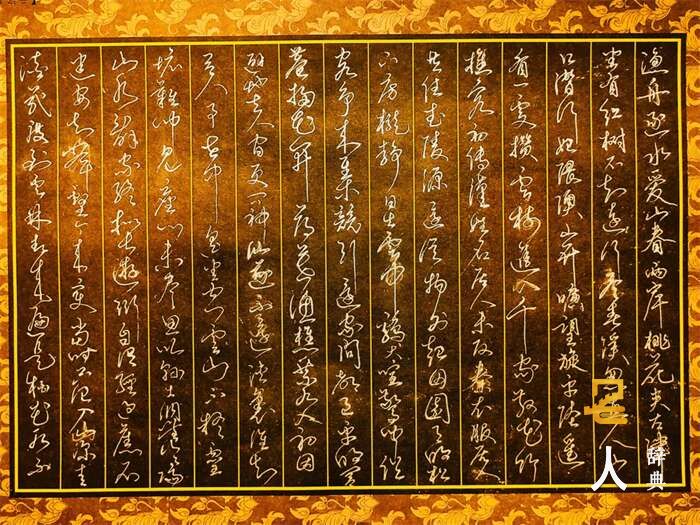 漁舟逐水愛山春兩岸桃花夹古津
坐看紅樹不知遠行盡青溪忽值人山
口潛行始隈隩山開曠望旋平陸遙
看一處攢雲樹進入千家散花竹
樵客初傳漢姓名居人未改秦衣服居人
共住武陵源還從物外起田園月明松
下房櫳靜日出雲中鷄犬喧驚聞俗
客爭來集競引還家問都邑平明閭
巷掃花開薄暮漁樵乘水入初因
避地去人間更問神仙遂不還峽裏誰知
有人事世中遙望空雲山不疑靈
境難聞見塵心未盡思鄉縣出洞無論隔
山水辭家終擬長游衍自謂經過舊不
迷安知峰壑今來變當時只記入山深青
溪幾度到雲林春來遍是桃花水不
名人辞典